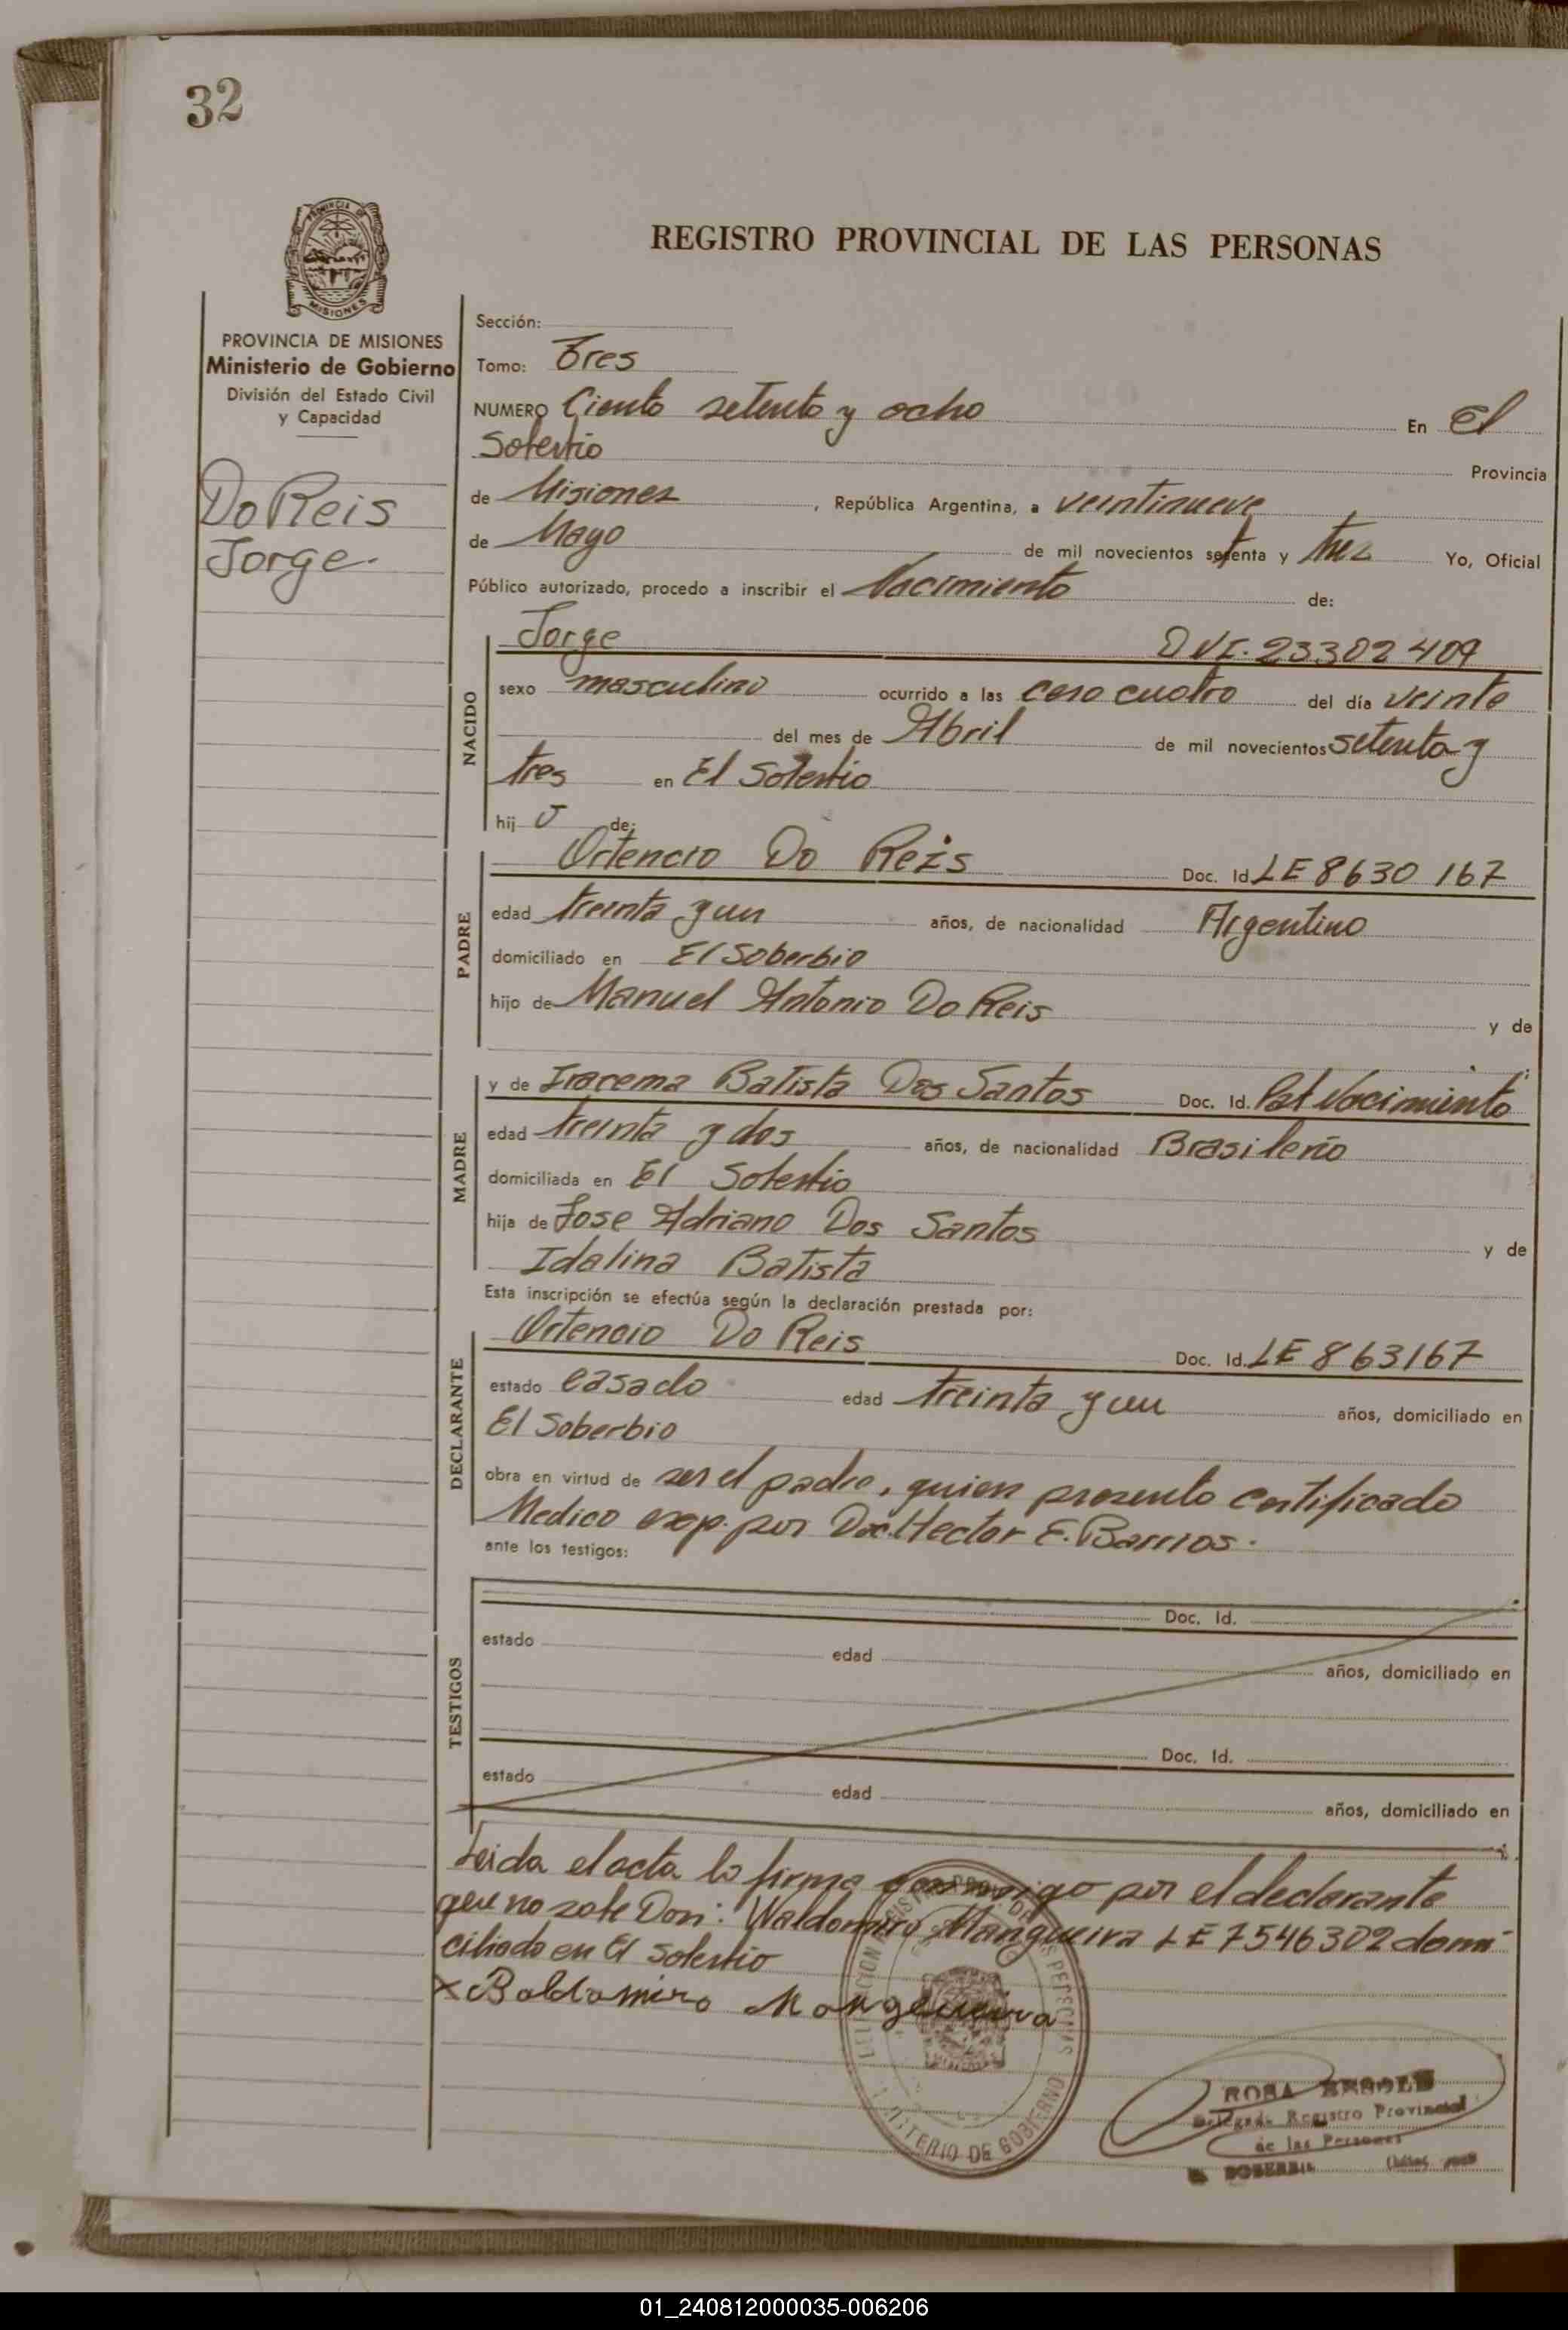 32
PROVINCIA DE
MISIONES
REGISTRO PROVINCIAL DE LAS PERSONAS
PROVINCIA DE MISIONES
Ministerio de Gobierno
División del Estado Civil
y Capacidad
Do Reis
Jorge.
Sección:
Tomo: Tres
NUMERO Ciento setenta y ocho En El
Soberbio Provincia
de Misiones, República Argentina, a veintinueve
de Mayo de mil novecientos setenta y tres Yo, Oficial
Público autorizado, procedo a inscribir el Nacimiento de:
NACIDO
Jorge DNI. 23.302 409
sexo masculino ocurrido a las cero cuatro del día veinte
del mes de Abril de mil novecientos setenta y
tres en El Soberbio
hij o de:
PADRE
Ortencio Do Reis Doc. Id. LE 8630 167
edad treinta y un años, de nacionalidad Argentino
domiciliado en El Soberbio
hijo de Manuel Antonio Do Reis y de
MADRE
y de Iracema Batista Dos Santos Doc. Id. Pat Nacimiento
edad treinta y dos años, de nacionalidad Brasileño
domiciliada en El Soberbio
hija de Jose Adriano Dos Santos y de
Idalina Batista
Esta inscripción se efectúa según la declaración prestada por:
DECLARANTE
Ortencio Do Reis Doc. Id. LE 863167
estado casado edad treinta y un años, domiciliado en
El Soberbio
obra en virtud de ser el padre, quien presento certificado
Medico exp. por Doc. Hector E. Barrios.
ante los testigos:
TESTIGOS
Doc. Id.
estado edad años, domiciliado en
Doc. Id.
estado edad años, domiciliado en
Leida el acta la firma conmigo por el declarante
que no sabe Don: Waldomiro Mangueira LE 7546302 domi
ciliado en El Soberbio
x Baldomiro Mangueira
MINISTERIO DE GOBIERNO
ROSA
Delegada Registro Provincial
de las Personas
01_240812000035-006206